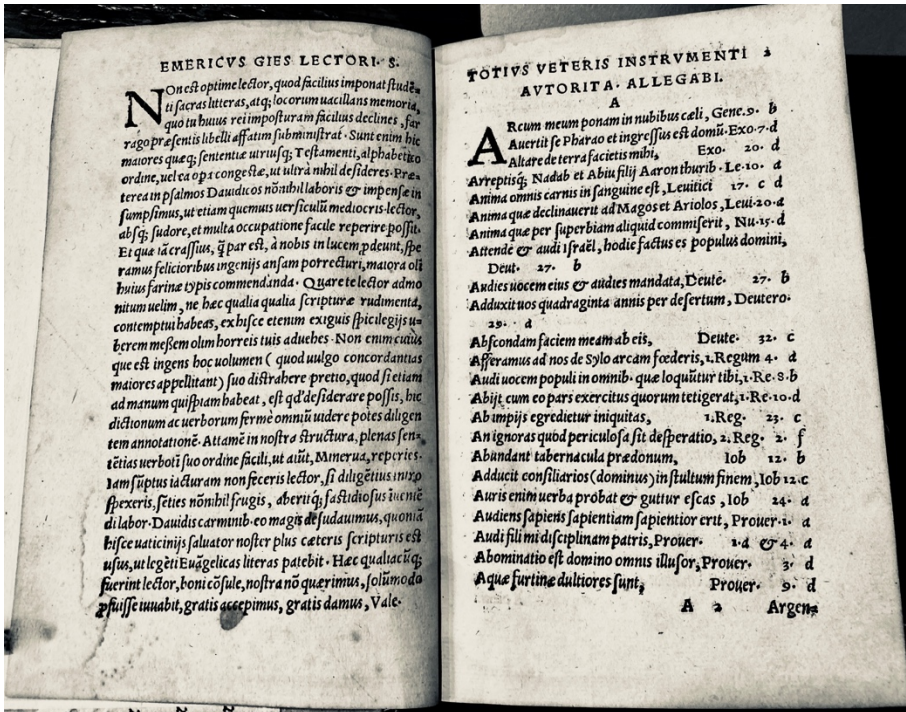 EMERICVS GIES LECTORI· S.
NOn est optime lector, quod facilius imponat studẽ=
ti sacras litteras, atq; locorum uacillans memoria,
quo tu huius rei imposturam facilius declines, far
rago præsentis libelli affatim subministrat · Sunt enim hic
maiores quæq; sententiæ utriusq; Testamenti, alphabetico
ordine, uel ea ope congestæ, ut ultrà nihil desideres · Præ=
terea in psalmos Dauidicos nõnihil laboris & impensæ in
sumpsimus, ut etiam quemuis uersiculũ mediocris lector,
absq; sudore, et multa occupatione facile reperire possit·
Et quæ iã crassius, q̃ par est, à nobis in lucem ꝓdeunt, spe
ramus felicioribus ingenijs ansam porrecturi, maiora oli
huius farinæ typis commendanda · Quare te lector admo
nitum uelim, ne hæc qualia qualia scripturæ rudimenta,
contemptui habeas, ex hisce etenim exiguis spicilegijs u=
berem messem olim horreis tuis aduehes · Non enim cuius
que est ingens hoc uolumen ( quod uulgo concordantias
maiores appellitant) suo distrahere pretio, quod si etiam
ad manum quispiam habeat, est qd' desiderare possis, hic
dictionum ac uerborum fermè omniũ uidere potes diligen
tem annotationẽ· Attamẽ in nostra structura, plenas sen=
tẽtias uerboti suo ordine facili, ut aiũt, Minerua, reperies·
Iam sũptus iacturam non feceris lector, si diligẽtius
spexeris, seties nõnihil frugis, aberitq; fastidiosus
di labor · Dauidis carminib· eo magis desudauimus, quoniã
hisce uaticinijs saluator noster plus cæteris scripturis est
usus, ut legẽti Euãgelicas literas patebit · Hæc qualiacũq;
fuerint lector, boni cõsule, nostra nõ quærimus, solũmodo
ꝓfuisse iuuabit, gratis accepimus, gratis damus, Vale·
TOTIVS VETERIS INSTRVMENTI 2
AVTORITA. ALLEGABI.
A
ARcum meum ponam in nubibus cæli, Gene.9. b
Auertit se Pharao et ingressus est domũ·Exo·7·d
Altare de terra facietis mihi, Exo· 20· d
Arreptisq; Nadab et Abiu filij Aaron thurib·Le·10· d
Anima omnis carnis in sanguine est, Leuitici 17· c d
Anima quæ declinauerit ad Magos et Ariolos, Leui·20·d
Anima quæ per superbiam aliquid commiserit, Nu·15·d
Attende & audi Israël, hodie factus es populus domini,
Deut· 27· b
Audies uocem eius & audies mandata, Deute· 27· b
Adduxit uos quadraginta annis per desertum, Deutero·
29· d
Abscondam faciem meam ab eis, Deute· 32· c
Afferamus ad nos de Sylo arcam fœderis, 1.Regum 4· d
Audi uocem populi in omnib· quæ loquũtur tibi,1·Re·8.b
Abijt cum eo pars exercitus quorum tetigerat,1·Re·10·d
Ab impijs egredietur iniquitas, 1.Reg· 23· c
An ignoras quòd periculosa sit desperatio, 2.Reg· 2· f
Abundant tabernacula prædonum, Iob 12· b
Adducit consiliarios (dominus) in stultum finem, Iob 12·c
Auris enim uerba probat & guttur escas, Iob 24· d
Audiens sapiens sapientiam sapientior erit, Prouer·1· a
Audi fili mi disciplinam patris, Prouer· 1·d & 4· a
Abominatio est domino omnis illusor, Prouer· 3· d
Aquæ furtiuæ dultiores sunt, Prouer· 9· d
A 2 Argen=